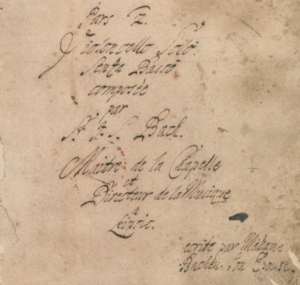 Pars 2.
Violoncello Solo
Senza Basso
composée
par
Sr. J. S. Bach.
Maitre de la Chapelle
et
Directeur de la Musique
a
Leipsic.
ecrite par Madame
Bachen. Son Epouse.